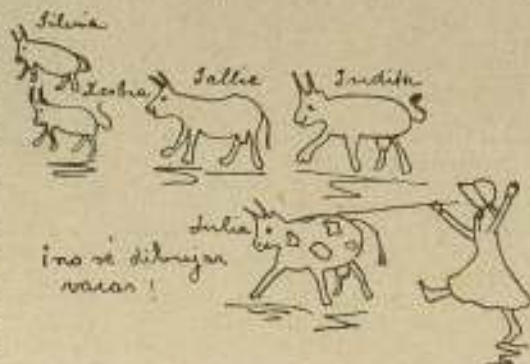 Silvia
Lesbia
Sallie
Judith
Julia
¡no sé dibujar
vacas!